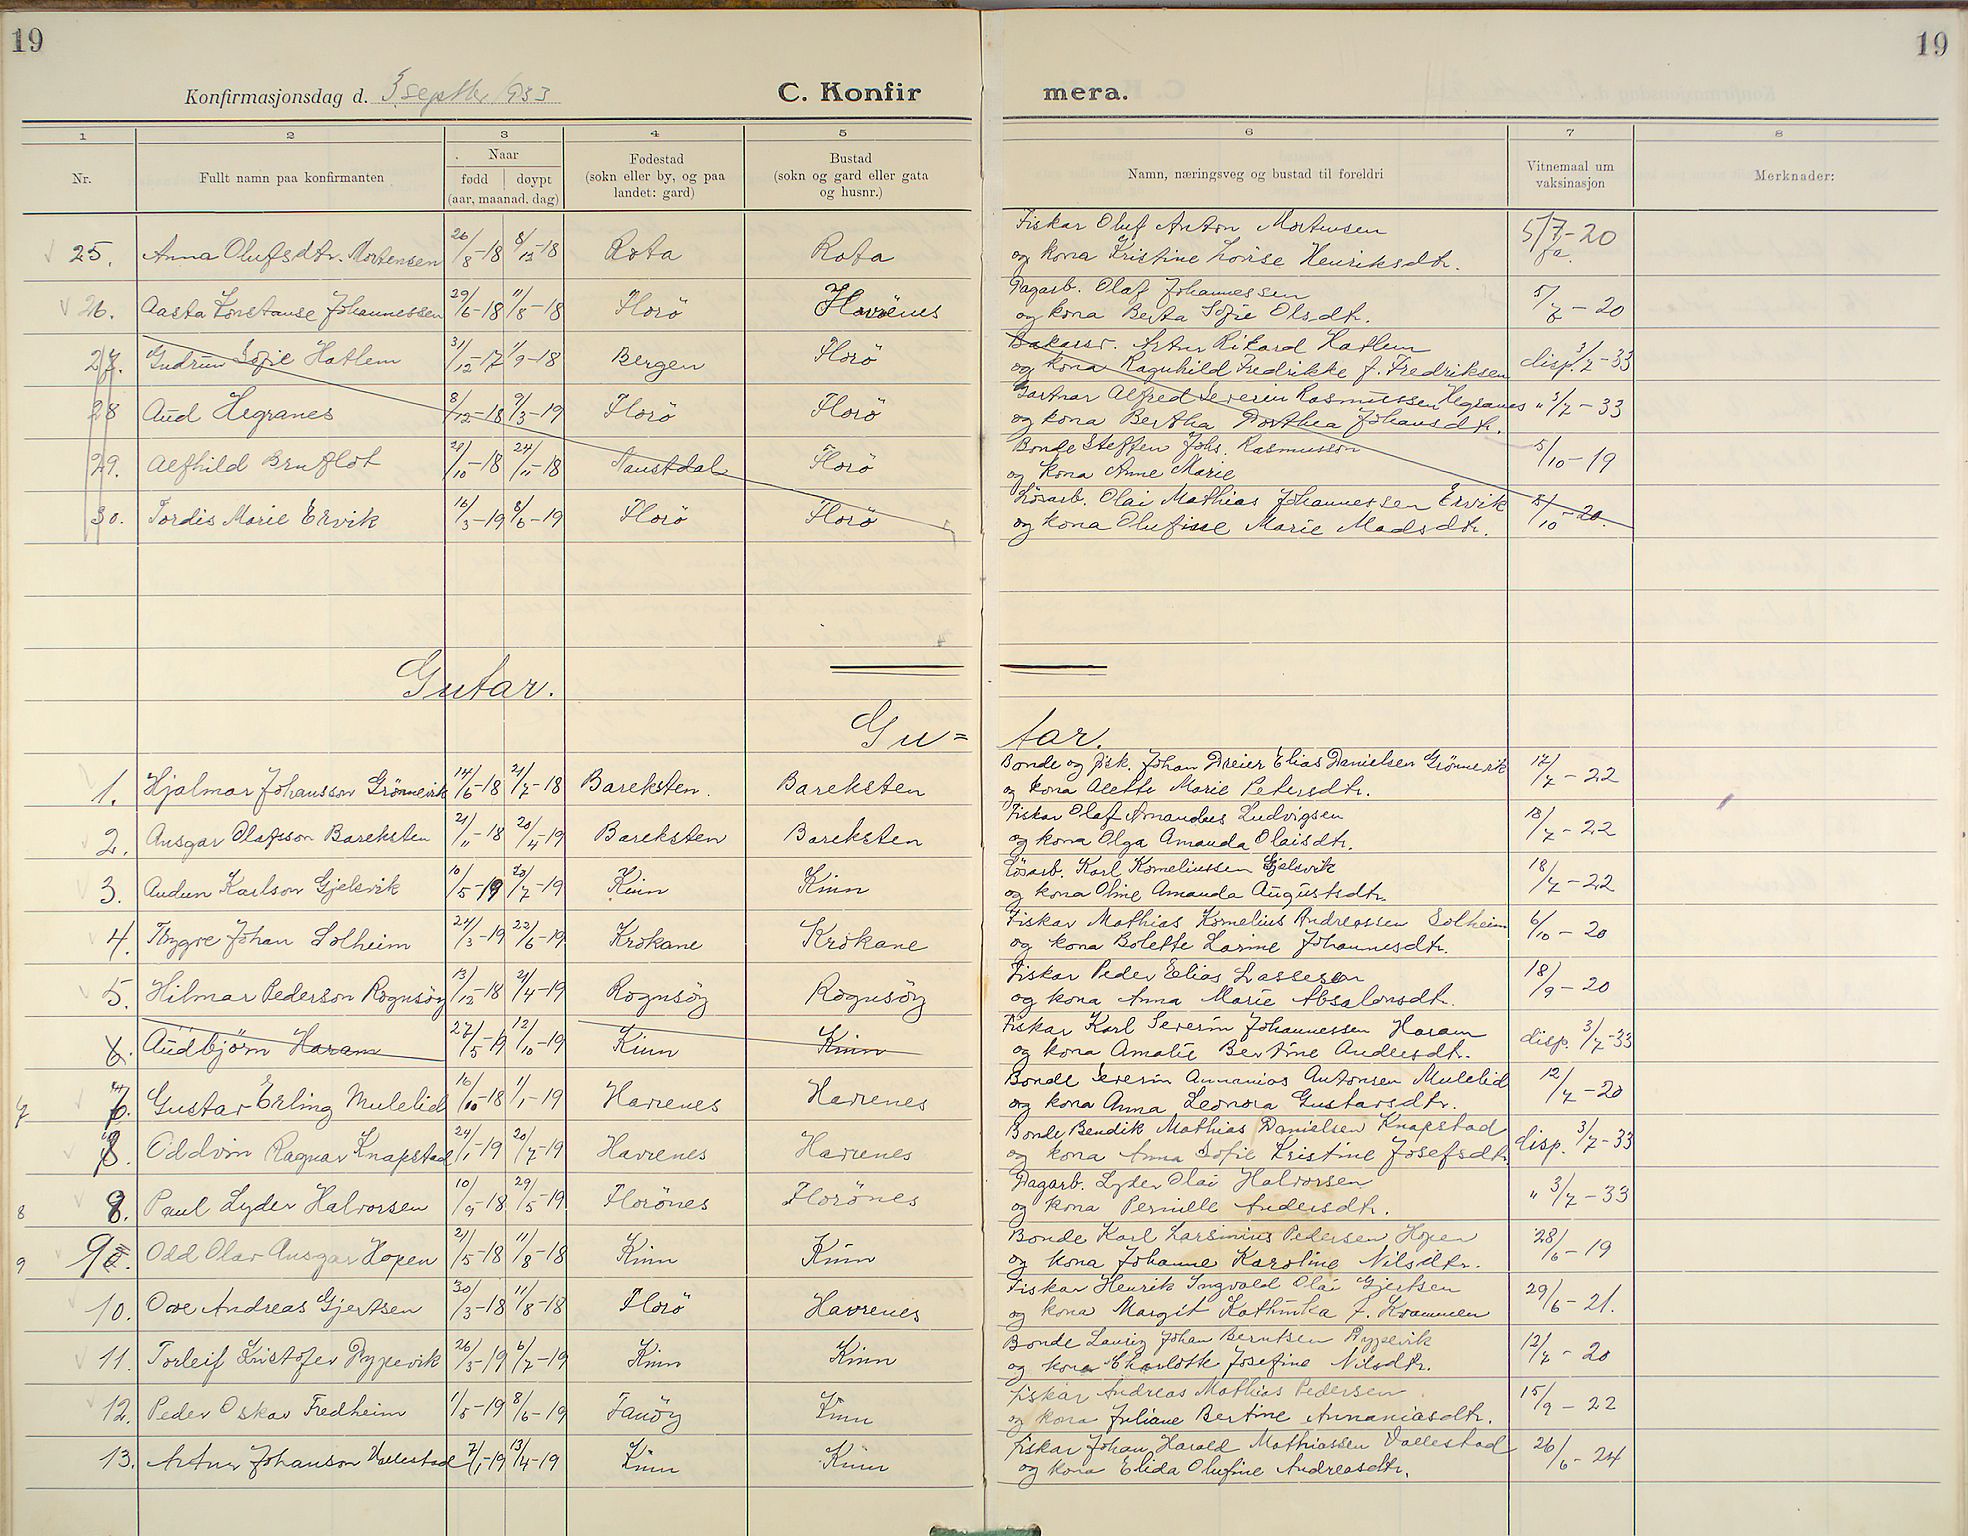 19
19
Konfirmasjonsdag d. 3 septbr 1933
C. Konfir mera.
1 2 3 4 5 6 7 8
Nr.
Fullt namn paa konfirmanten
Naar
fødd døypt
(aar, maanad, dag)
Fødestad
(sokn eller by, og paa
landet: gard)
Bustad
(sokn og gard eller gata
og husnr.)
Namn, næringsveg og bustad til foreldri
Vitnemaal um
vaksinasjon
Merknader:
25. Anna Olufsdtr. Mortensen 26/8-18 8/12-18 Rota Rota Fiskar Oluf Anton Mortensen 5/7-20
og kona Kristine Lovise Henriksdtr.
26. Aasta Konstanse Johannessen 29/6-18 11/8-18 Florö Havrenes Dagarb. Olaf Johannessen 5/7-20
og kona Berta Sofie Olsdtr.
27. Gudrun Sofie Hatlem 31/12-17 1/9-18 Bergen Florö Bakarsv. Artur Rikard Hatlem disp. 3/7-33
og kona Ragnhild Fredrikke f. Fredriksen
28 Aud Hegranes 8/12-18 9/3-19 Florö Florö Gartnar Alfred Severin Rasmussen Hegranes " 3/7-33
og kona Bertha Dorthea Johansdtr.
29. Alfhild Bruflot 21/10-18 24/11-18 Naustdal Florö Bonde Steffen Johs. Rasmusson 5/10-19
og kona Anne Marie
30. Tordis Marie Ervik 16/3-19 8/6-19 Florö Florö Lösarb. Olai Mathias Johannessen Ervik 8/10-20.
og kona Olufine Marie Madsdtr.
Gutar.
Gu= tar.
1. Hjalmar Johansson Grönnevik 14/6-18 21/7-18 Bareksten. Bareksten Bonde og fisk. Johan Dreier Elias Danielsen Grönnevik 17/7-22
og kona Alette Marie Petersdtr.
2. Ansgar Olafsson Bareksten 21/11-18 20/4-19 Bareksten Bareksten Fiskar Olaf Amandus Ludvigsen 18/7-22
og kona Olga Amanda Olaisdtr.
3. Audun Karlson Gjelsvik 10/5-19 20/7-19 Kinn Kinn Lösarb. Karl Korneliussen Gjelsvik 18/7-22
og kona Oline Amanda Augustsdtr.
4. Trygve Johan Solheim 24/3-19 22/6-19 Krokane Krokane Fiskar Mathias Kornelius Andreassen Solheim 6/10-20
og kona Bolette Larine Johannesdtr.
5. Hilmar Pederson Rognsöy 13/12-18 21/4-19 Rognsöy Rognsöy Fiskar Peder Elias Lassesen 18/9-20
og kona Anna Marie Absalonsdtr.
6. Audbjörn Haram 27/5-19 12/10-19 Kinn Kinn Fiskar Karl Severin Johannessen Haram disp. 3/7-33
og kona Amalie Bertine Andersdtr.
7 Gustav Erling Mulelid 16/10-18 1/1-19 Havrenes Havrenes Bonde Severin Annanias Antonsen Mulelid 12/7-20
og kona Anna Leonora Gustavsdtr.
Oddvin Ragnar Knapstad 24/1-19 20/7-19 Havrenes Havrenes Bonde Bendik Mathias Danielsen Knapstad disp. 3/7-33
og kona Anna Sofie Kristine Josefsdtr.
8 8. Paul Lyder Halvorsen 10/9-18 29/5-19 Florönes Florönes Dagarb. Lyder Olai Halvorsen " 3/7-33
og kona Pernille Andersdtr.
9 9. Odd Olav Ansgar Hopen 21/5-18 11/8-18 Kinn Kinn Bonde Karl Larsinius Pedersen Hopen 28/6-19
og kona Johanne Karoline Nilsdtr.
10. Ove Andreas Gjertsen 30/3-18 11/8-18 Florö Havrenes Fiskar Henrik Ingvald Olai Gjertsen 29/6-21.
og kona Margit Kathinka f. Kvammen
11. Torleif Kristofer Rypevik 26/3-19 6/7-19 Kinn Kinn Bonde Lauriz Johan Berntsen Rypevik 12/7-20
og kona Charlotte Josefine Nilsdtr.
12. Peder Oskar Fredheim 1/5-19 8/6-19 Fanöy Kinn Fiskar Andreas Mathias Pedersen 15/9-22
og kona Juliane Bertine Annaniasdtr.
13. Artur Johanson Vallestad 7/1-19 13/4-19 Kinn Kinn Fiskar Johan Harald Mathiassen Vallestad 26/6-24
og kona Elida Olufine Andreasdtr.